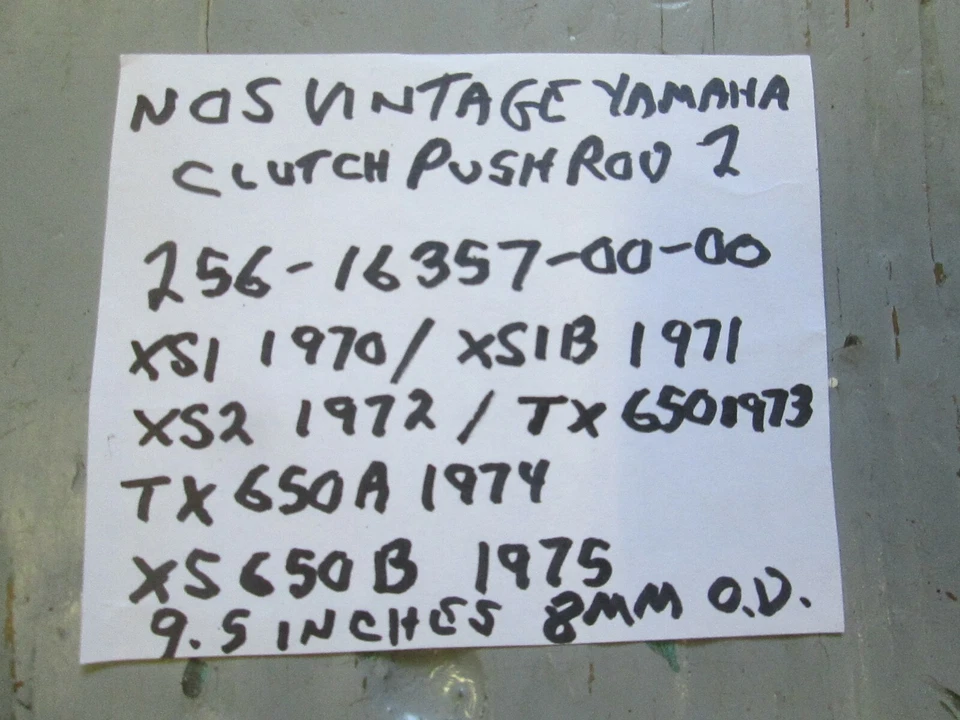 NOS VINTAGE YAMAHA
CLUTCH PUSH ROD 2
256-16357-00-00
XS1 1970 / XS1B 1971
XS2 1972 / TX 650 1973
TX 650A 1974
XS 650 B 1975
9.5 INCHES 8MM O.D.